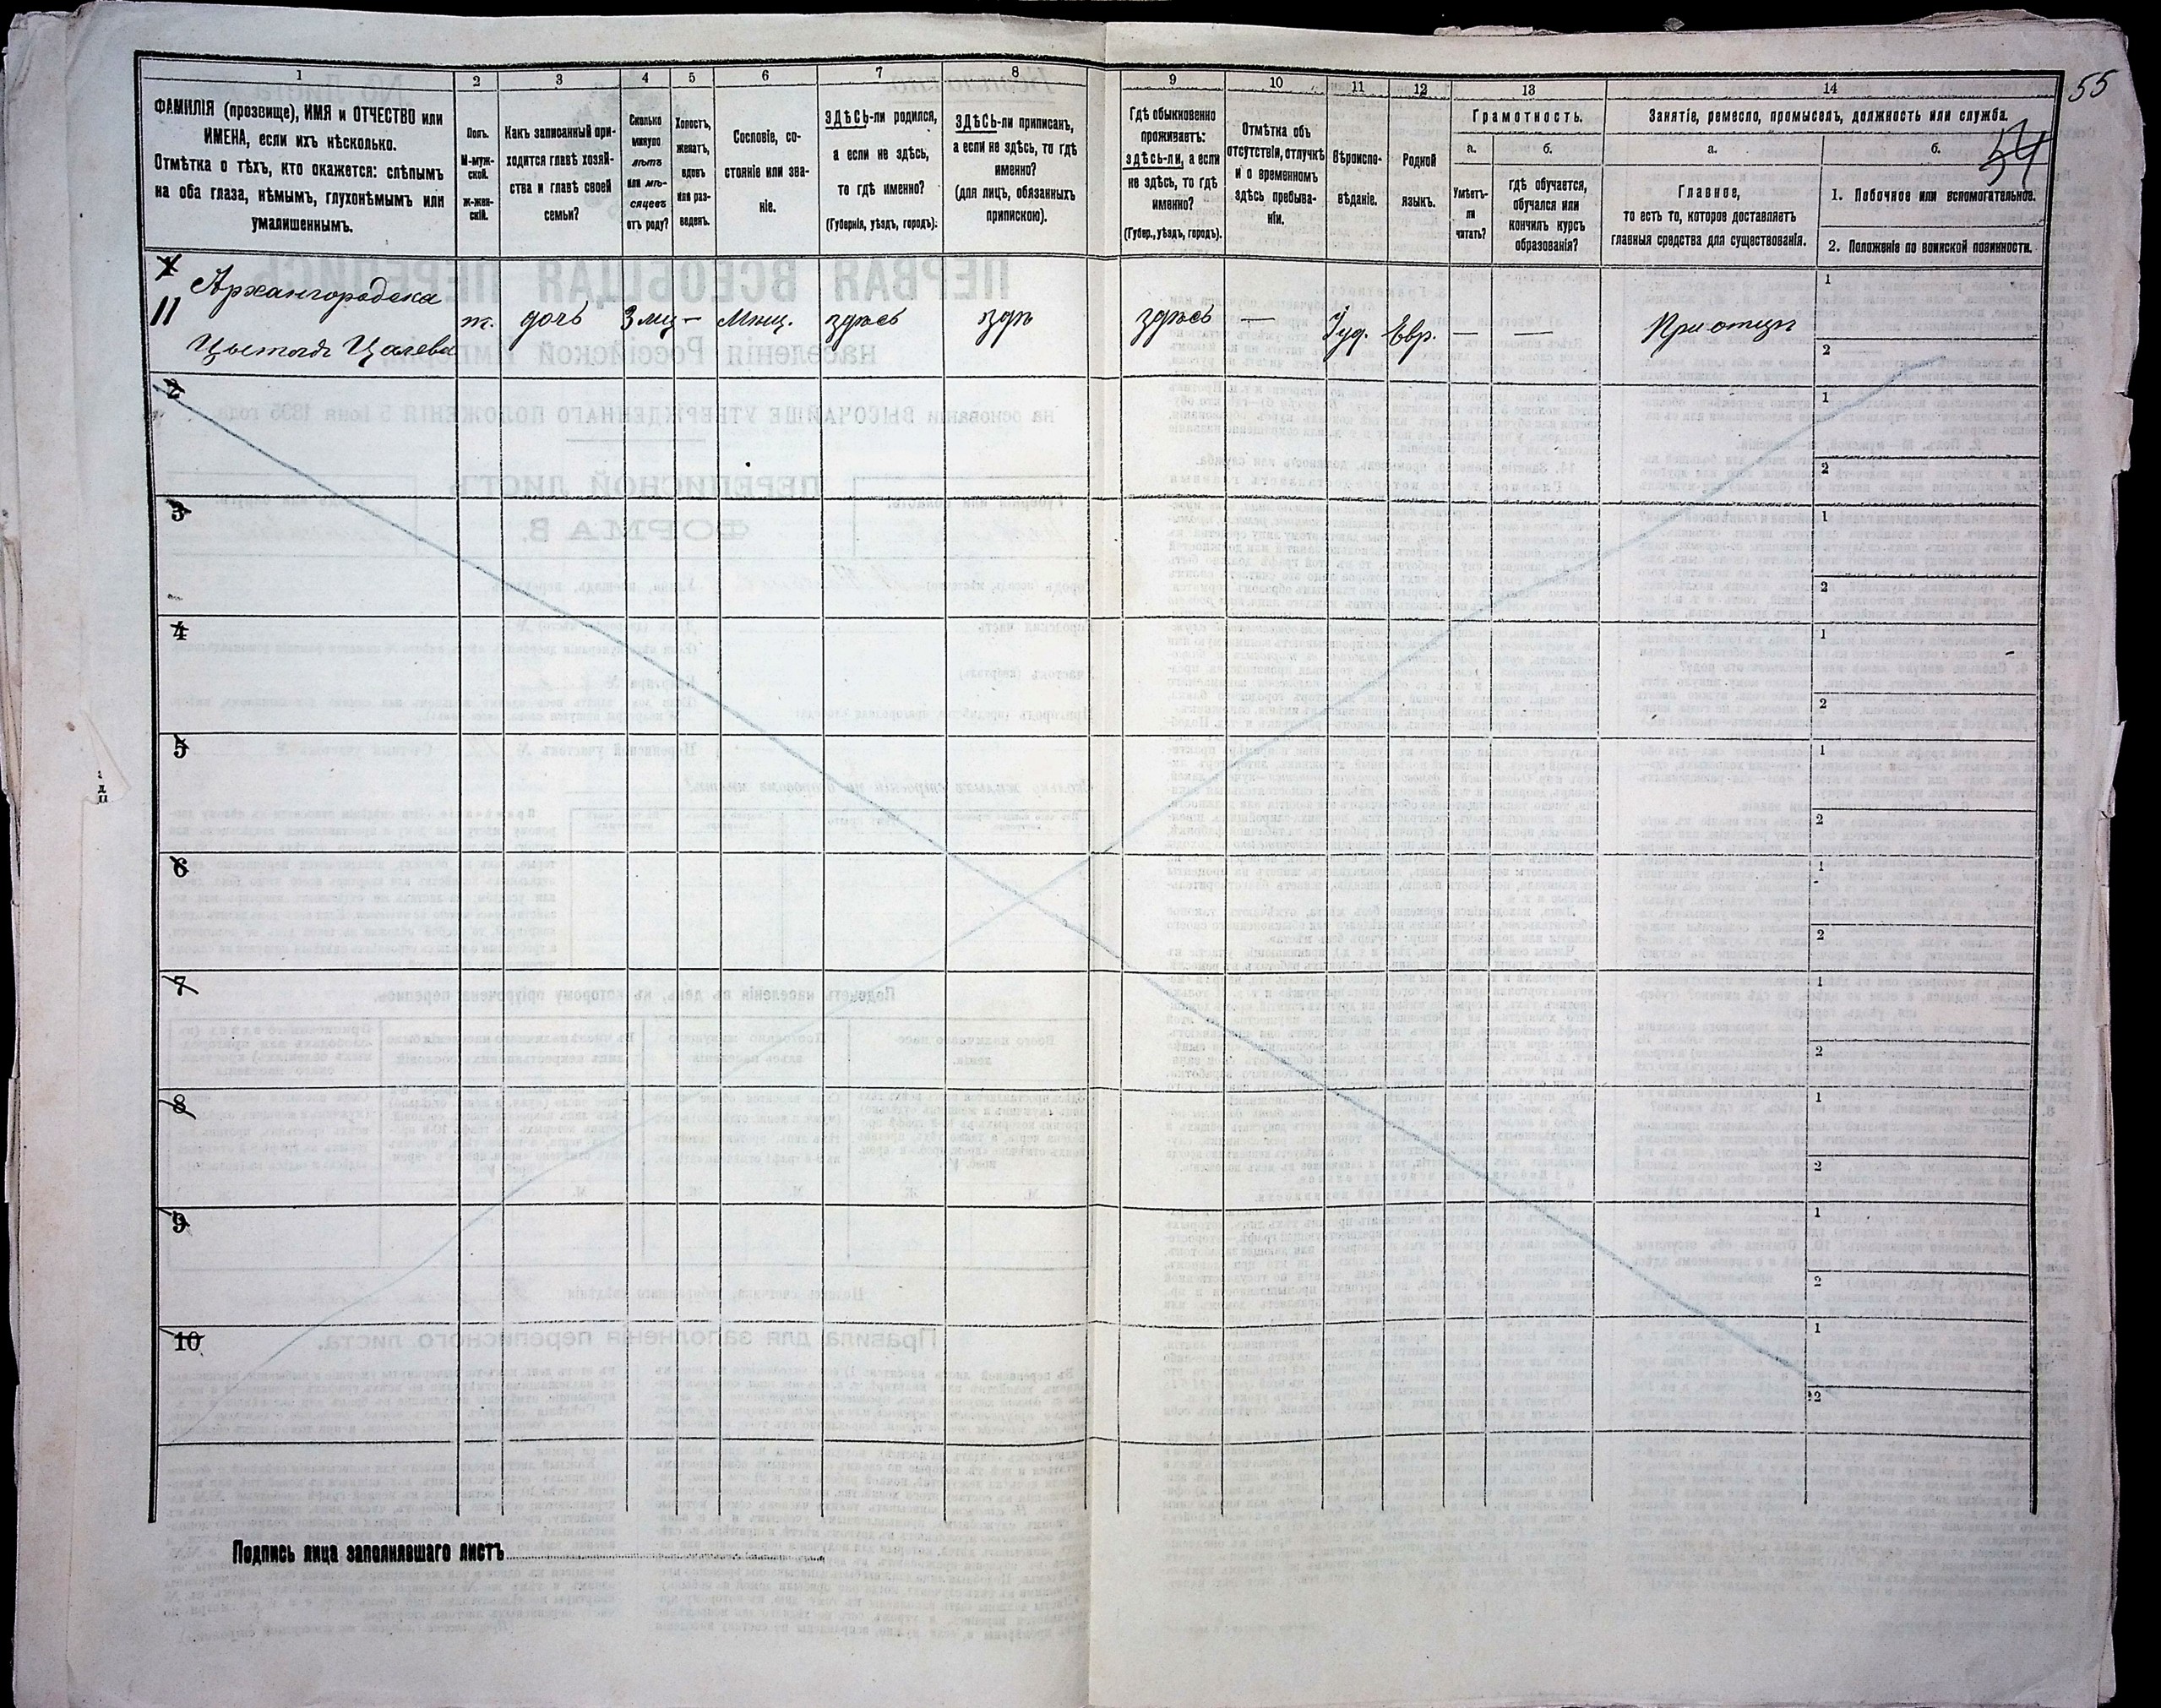 55
54
1
2
3
4
5
6
7
8
9
10
11
12
13
14
ФАМИЛІЯ (прозвище), ИМЯ и ОТЧЕСТВО или
ИМЕНА, если ихъ нѣсколько.
Отмѣтка о тѣхъ, кто окажется: слѣпымъ
на оба глаза, нѣмымъ, глухонѣмымъ или
умалишеннымъ.
Полъ.
М-муж-
ской.
ж-жен-
скій.
Какъ записанный при-
ходится главѣ хозяй-
ства и главѣ своей
семьи?
Сколько
минуло
лѣтъ
или мѣ-
сяцевъ
отъ роду?
Холостъ,
женатъ,
вдовъ
или раз-
веденъ.
Сословіе, со-
стояніе или зва-
ніе.
ЗДѢСЬ-ли родился,
а если не здѣсь,
то гдѣ именно?
(Губернія, уѣздъ, городъ).
ЗДѢСЬ-ли приписанъ,
а если не здѣсь, то гдѣ
именно?
(для лицъ, обязанныхъ
припискою).
Гдѣ обыкновенно
проживаетъ:
здѣсь-ли, а если
не здѣсь, то гдѣ
именно?
(Губер., уѣздъ, городъ).
Отмѣтка объ
отсутствіи, отлучкѣ
и о временномъ
здѣсь пребыва-
ніи.
Вѣроиспо-
вѣданіе.
Родной
языкъ.
Грамотность.
а.
б.
Умѣетъ-
ли
читать?
гдѣ обучается,
обучался или
кончилъ курсъ
образованія?
Занятіе, ремесло, промыселъ, должность или служба.
а.
б.
Главное,
то есть то, которое доставляетъ
главныя средства для существованія.
1. Побочное или вспомогательное.
2. Положеніе по воинской повинности.
1
11
Архангородска
ж.
дочь
3 мц
—
Мѣщ.
здѣсь
здѣ
здѣсь
—
Іуд.
Евр.
—
—
При отцѣ
1
2
2
1
2
3
1
2
4
1
2
5
1
2
6
1
2
7
1
2
8
1
2
9
1
2
10
1
2
Подпись лица заполнявшаго листъ